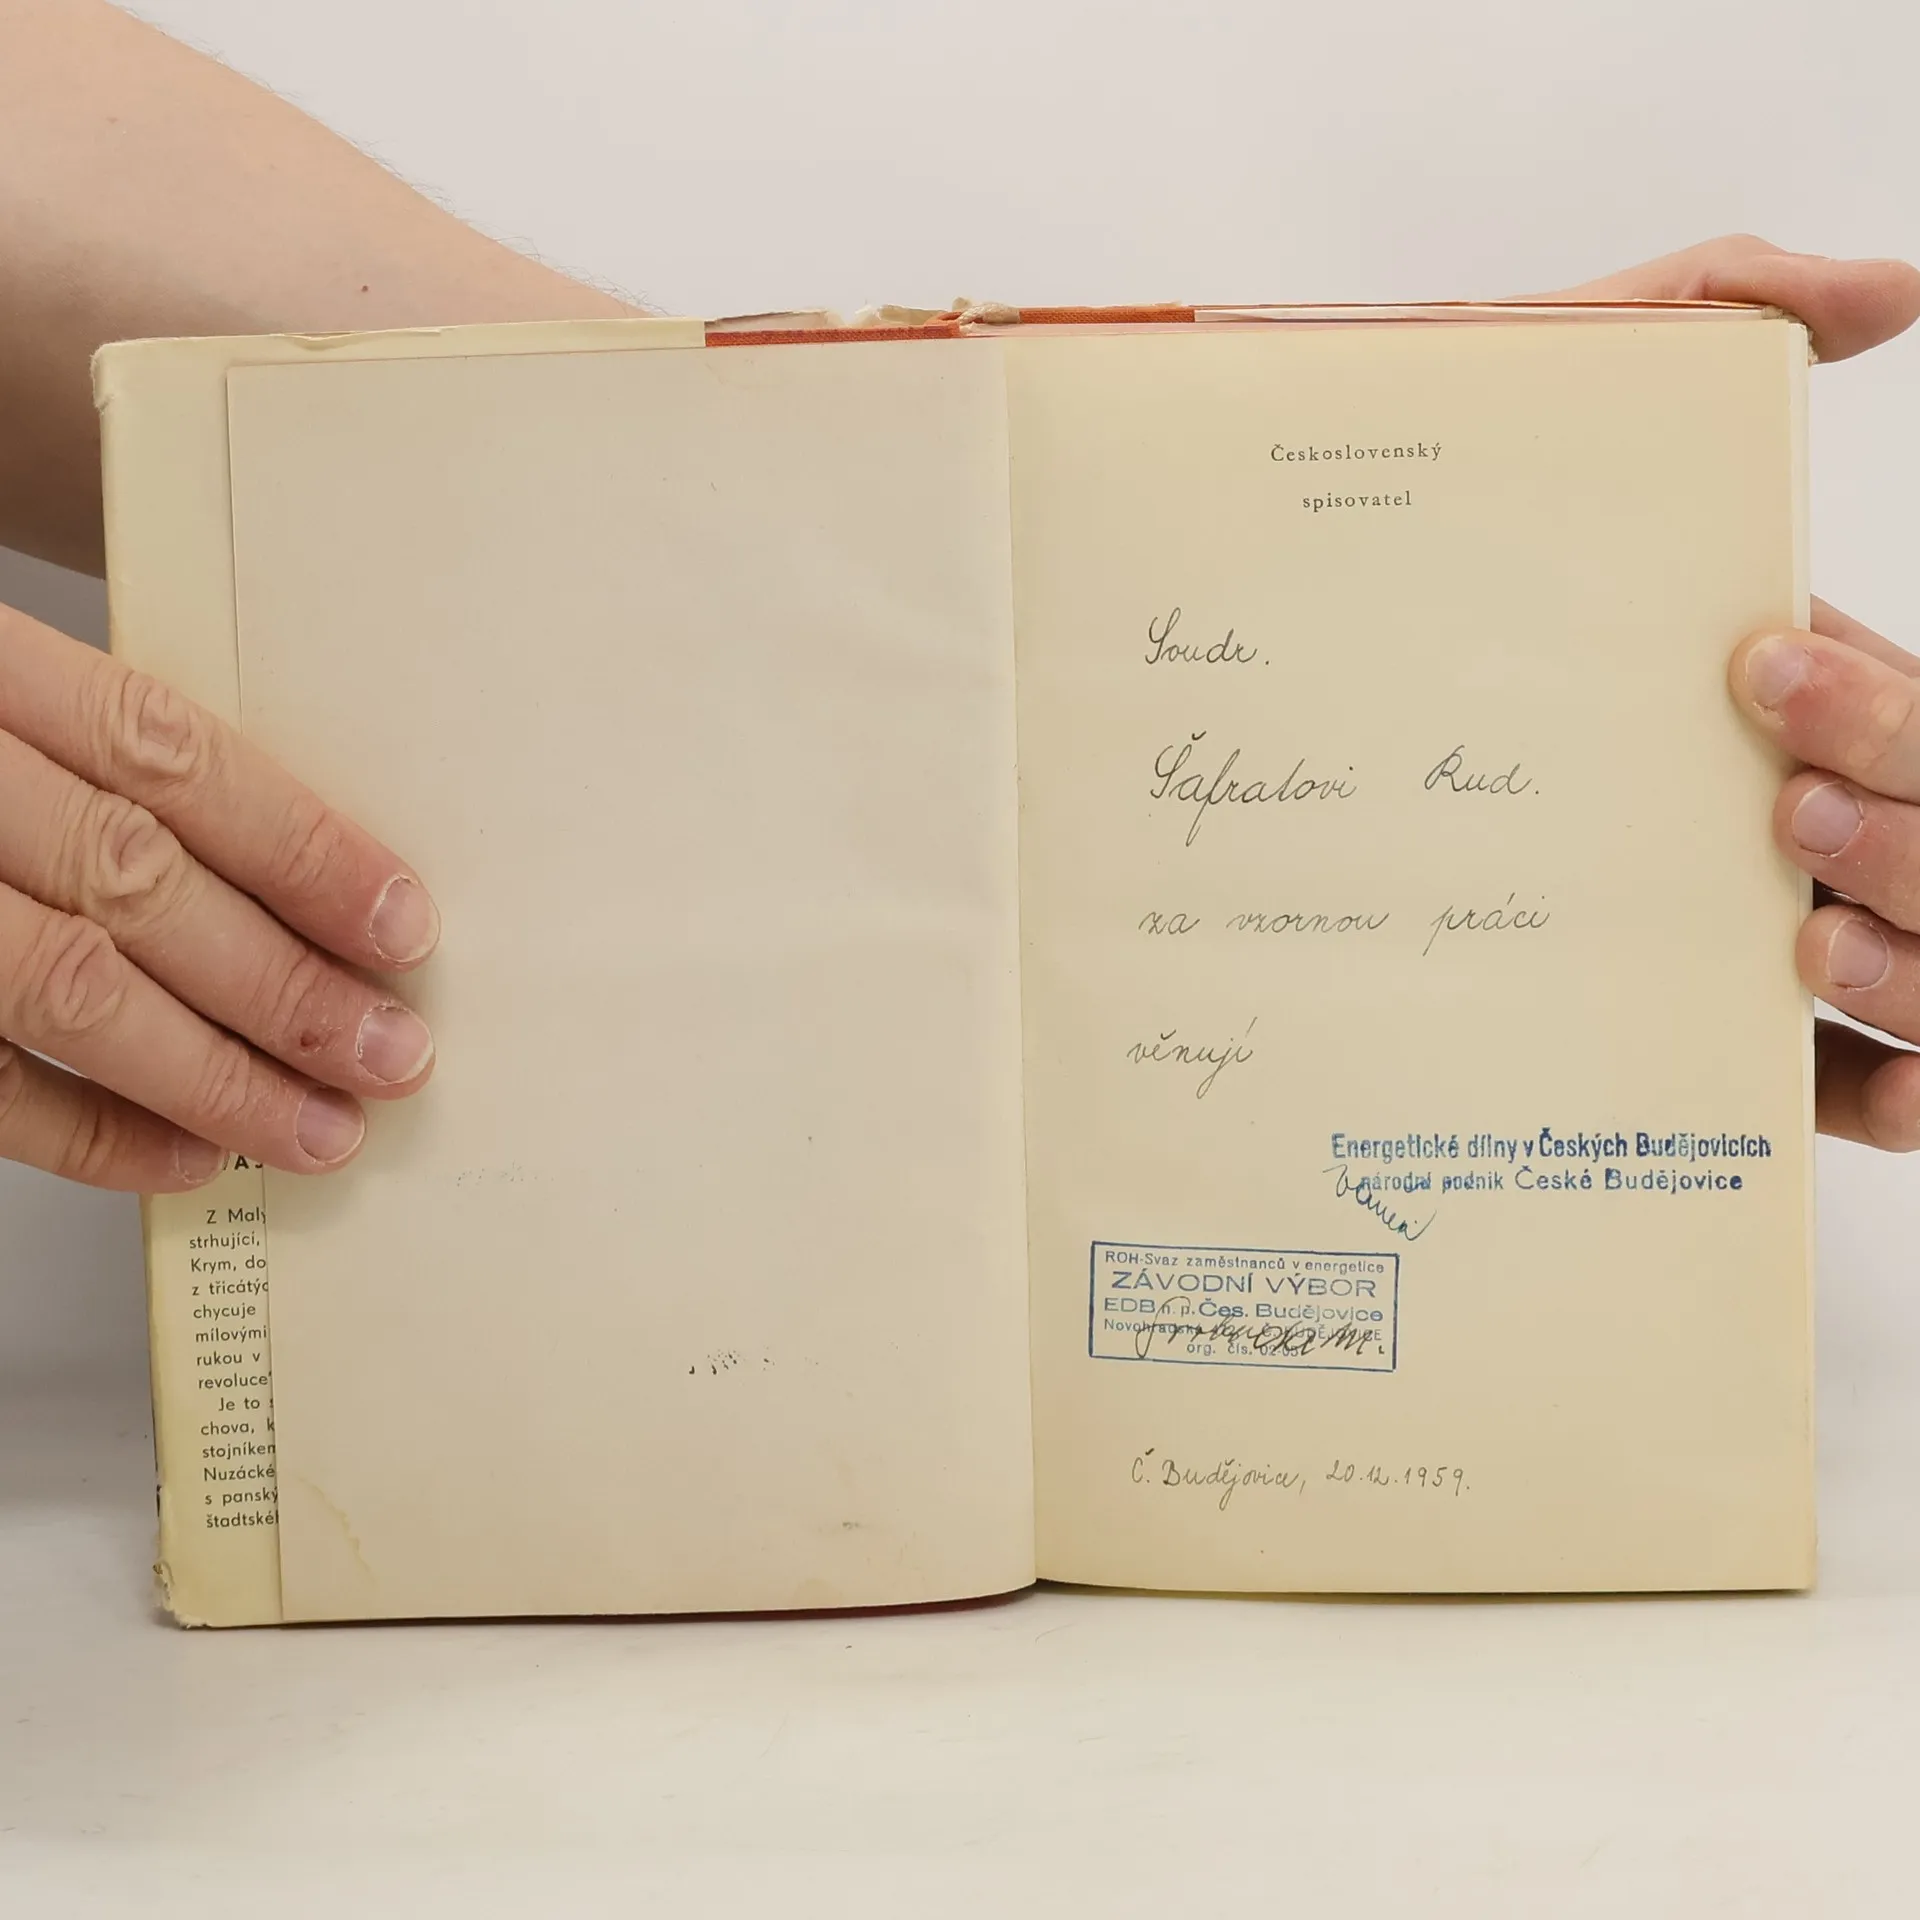 AJ
Z Malý
strhující,
Krym, do
z třicátýc
chycuje
mílovými
rukou v
revoluce"
Je to
chova, k
stojníkem
Nuzácké
s panský
štadtskéh
Československý
spisovatel
Soudr.
Šafratovi Rud.
za vzornou práci
věnují
Energetické dílny v Českých Budějovicích
národní podnik České Budějovice
ROH-Svaz zaměstnanců v energetice
ZÁVODNÍ VÝBOR
EDB n. p. Čes. Budějovice
Novohradská Č. BUDĚJOVICE
org. čís. 02-05
Č. Budějovice, 20.12.1959.